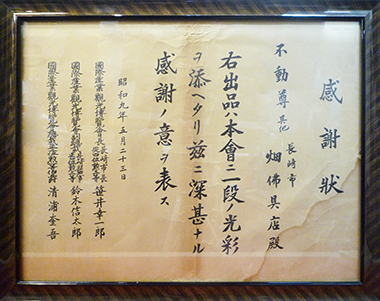 感謝狀
長崎市
不動尊其他 畑佛具店殿
右出品ハ本會ニ一段ノ光彩
ヲ添ヘタリ茲ニ深甚ナル
感謝ノ意ヲ表ス
昭和九年五月二十三日
國際產業觀光博覽會會長 長崎市長 笹井幸一郎
國際產業觀光博覽會 鈴木信太郎
國際產業觀光博覽會 清浦奎吾